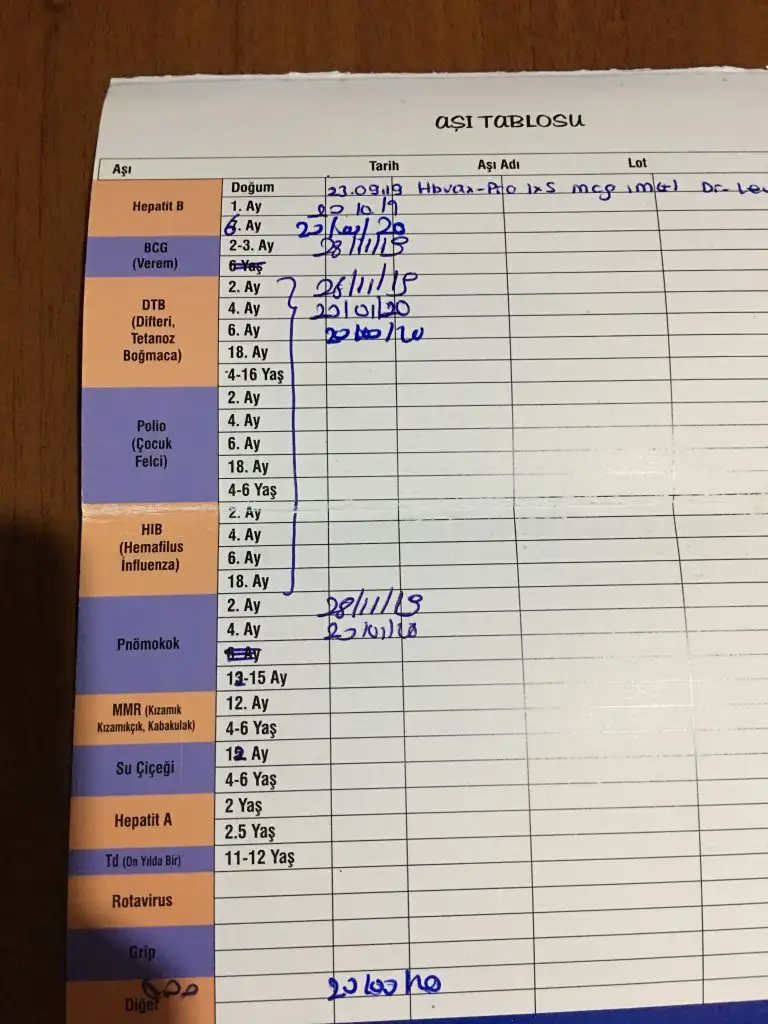 AŞI TABLOSU
Aşı Tarih Aşı Adı Lot
Hepatit B
Doğum 23.09.19 Hbvax-Pro 1x5 mcg im
1. Ay 10.19
6. Ay 20
BCG
(Verem)
2-3. Ay 28/11/19
6 Yaş
DTB
(Difteri,
Tetanoz
Boğmaca)
2. Ay /11/19
4. Ay /01/20
6. Ay 20
18. Ay
4-16 Yaş
Polio
(Çocuk
Felci)
2. Ay
4. Ay
6. Ay
18. Ay
4-6 Yaş
HIB
(Hemafilus
İnfluenza)
2. Ay
4. Ay
6. Ay
18. Ay
Pnömokok
2. Ay 28/11/19
4. Ay
Ay
12-15 Ay
MMR (Kızamık
Kızamıkçık, Kabakulak)
12. Ay
4-6 Yaş
Su Çiçeği
12 Ay
4-6 Yaş
Hepatit A
2 Yaş
2.5 Yaş
Td (On Yılda Bir) 11-12 Yaş
Rotavirus
Grip
Diğer